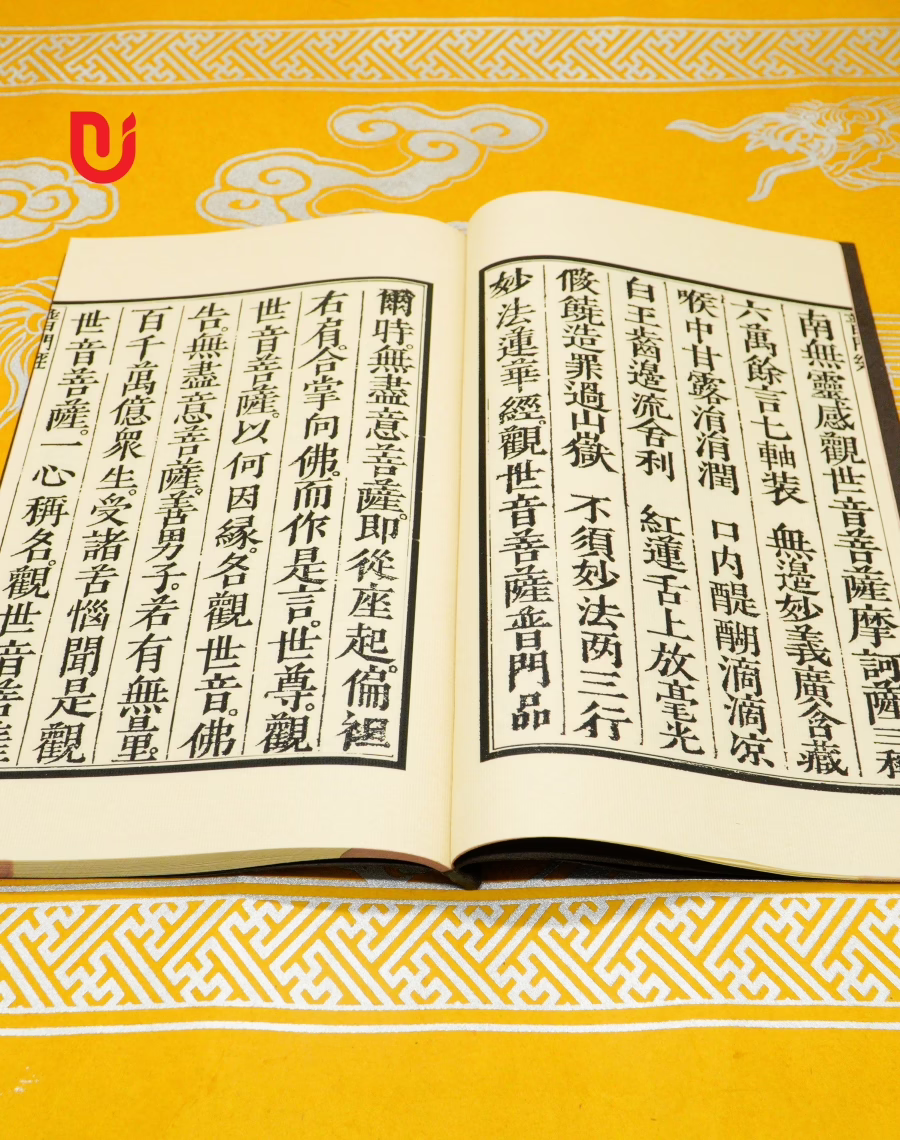 南無靈感觀世音菩薩摩訶薩三稱
六萬餘言七軸装 無邉妙義廣含藏
喉中甘露涓涓潤 口内醍醐滴滴凉
白玉齒邉流舍利 紅蓮舌上放毫光
假饒造罪過山嶽 不須妙法两三行
妙法蓮華經。觀世音菩薩普門品
爾時。無盡意菩薩。即從座起。偏袒
右肩。合掌向佛。而作是言。世尊。觀
世音菩薩。以何因緣。名觀世音。佛
告。無盡意菩薩。善男子。若有無量。
百千萬億衆生。受諸苦惱聞是觀
世音菩薩。一心稱名。觀世音菩薩